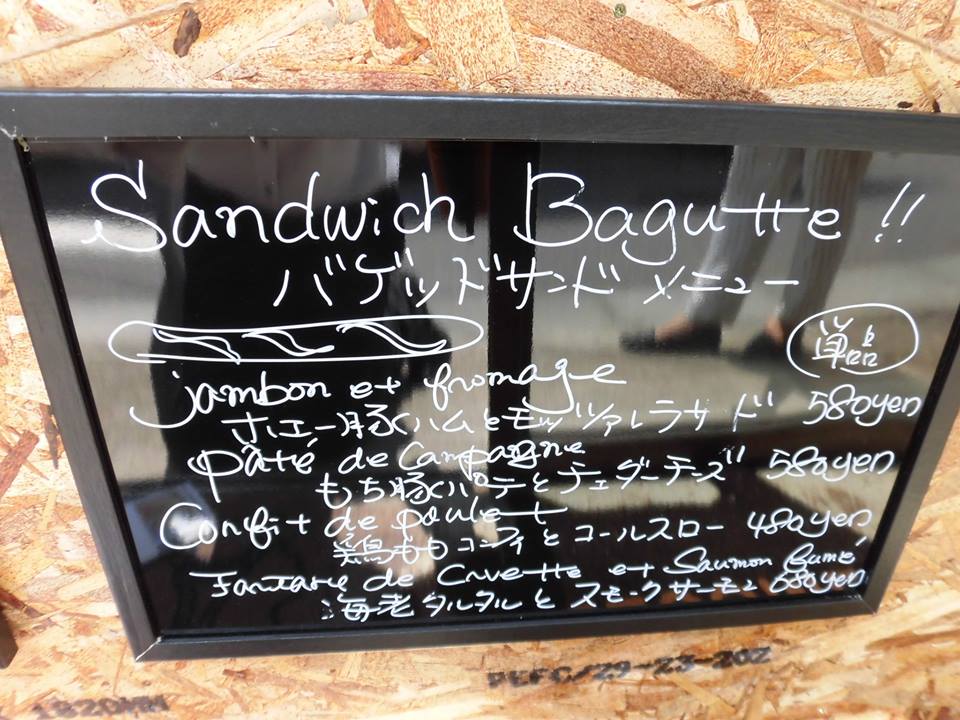 Sandwich Bagutte !!
バゲッドサンド メニュー
単品
jambon et fromage
ホエー豚ハムとモッツァレラサンド 580yen
pâté de Campagne
もち豚パテとチェダーチーズ 580yen
Confit de poulet
鶏ももコンフィとコールスロー 480yen
de Crevette et Saumon fumé
海老タルタルとスモークサーモン 680yen
PEFC/29-23-202
1820MM